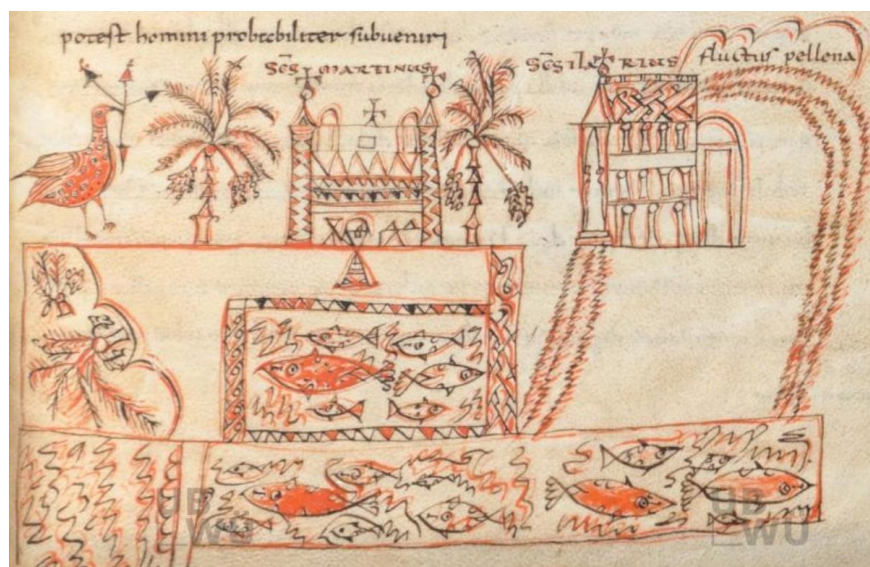 potest homini probtebiliter subueniri
SCS MARTINUS
SCS ILARIUS
fluctus pellena
UB
WÜ
UB
WÜ